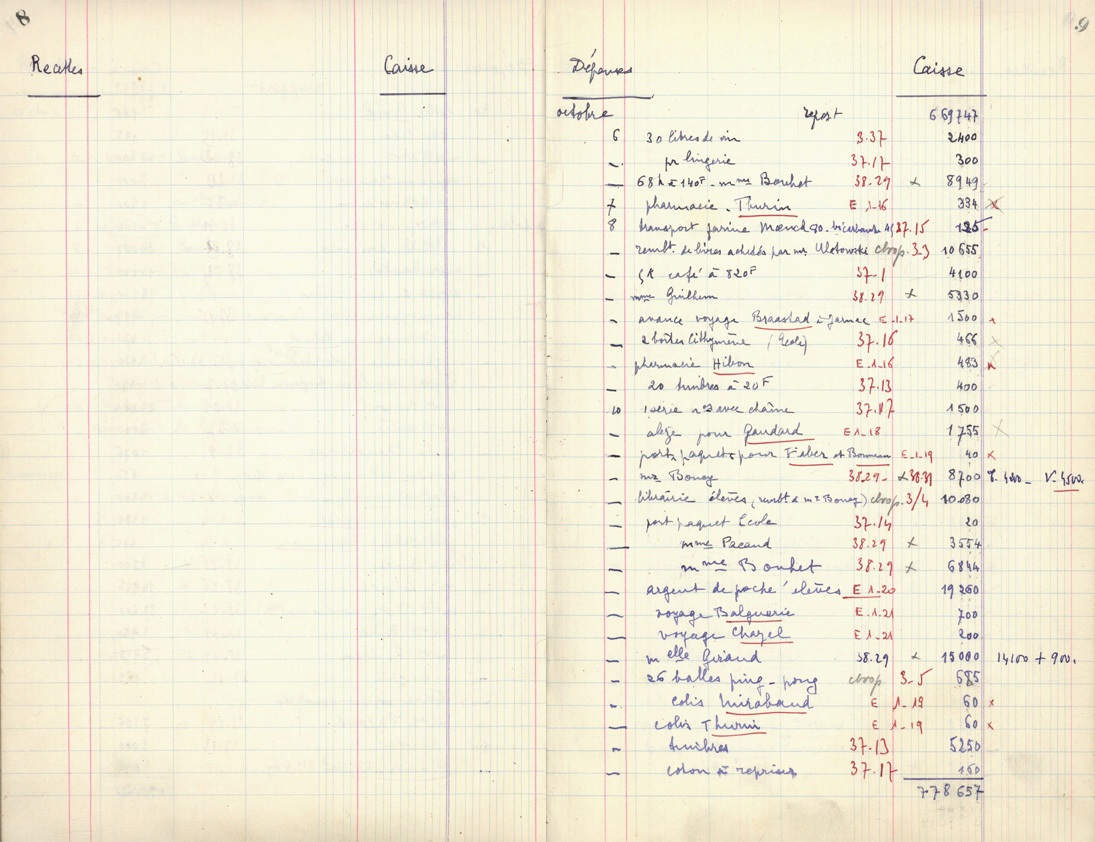 8
Recettes Caisse
9
Dépenses Caisse
octobre report 669747
6 30 litres de vin 3.37 2400
- pr lingerie 37.17 300
- 68 k à 140F - mme Bouhet 38.29 x 8949
7 pharmacie - Thurin E 1-16 334 x
8 transport farine 37.15 125
- rembt. de livres achetés par mr. coop. 3.3 10655
- 5k café à 820F 37.1 4100
- mme Guilhem 38.29 x 5330
- avance voyage Braastad à Jarnac E-1-17 1500 x
- 2 boîtes (Ecole) 37.16 466 x
- pharmacie Hibon E-1-16 483 x
- 20 timbres à 20F 37.13 400
10 1 série n°2 avec chaîne 37.17 1500
- alèze pour Gaudard E 1-18 1755 x
- ports paquets pour Faber et E-1-19 40 x
- mr Boney 38.29 - x 38.31 8700
- librairie élèves, (rembt à mr Boney) coop. 3/4 10.080
- port paquet Ecole 37.14 20
- mme Pacaud 38.29 x 3554
- mme Bouhet 38.29 x 6844
- argent de poche élèves E 1-20 19260
- voyage Balguerie E.1.21 700
- voyage Chazel E 1-21 200
- melle Giraud 38.29 x 15000 14100 + 900.
- 26 balles ping-pong coop 3-5 685
- colis Mirabaud E 1-19 60 x
- colis Thurin E 1-19 60 x
- timbres 37.13 5250
- coton à repriser 37.17 160
778657